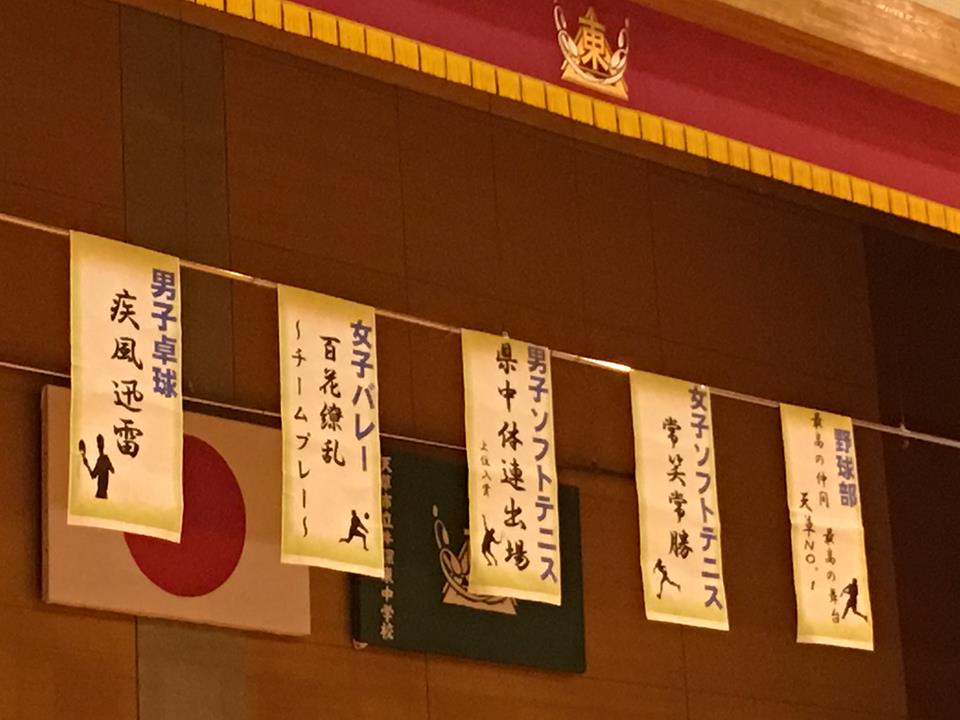 東
男子卓球
疾風迅雷
女子バレー
百花繚乱
～チームプレー～
男子ソフトテニス
県中体連出場
上位入賞
女子ソフトテニス
常笑常勝
野球部
最高の仲間 最高の舞台
天草NO.1
天草市立
東中学校